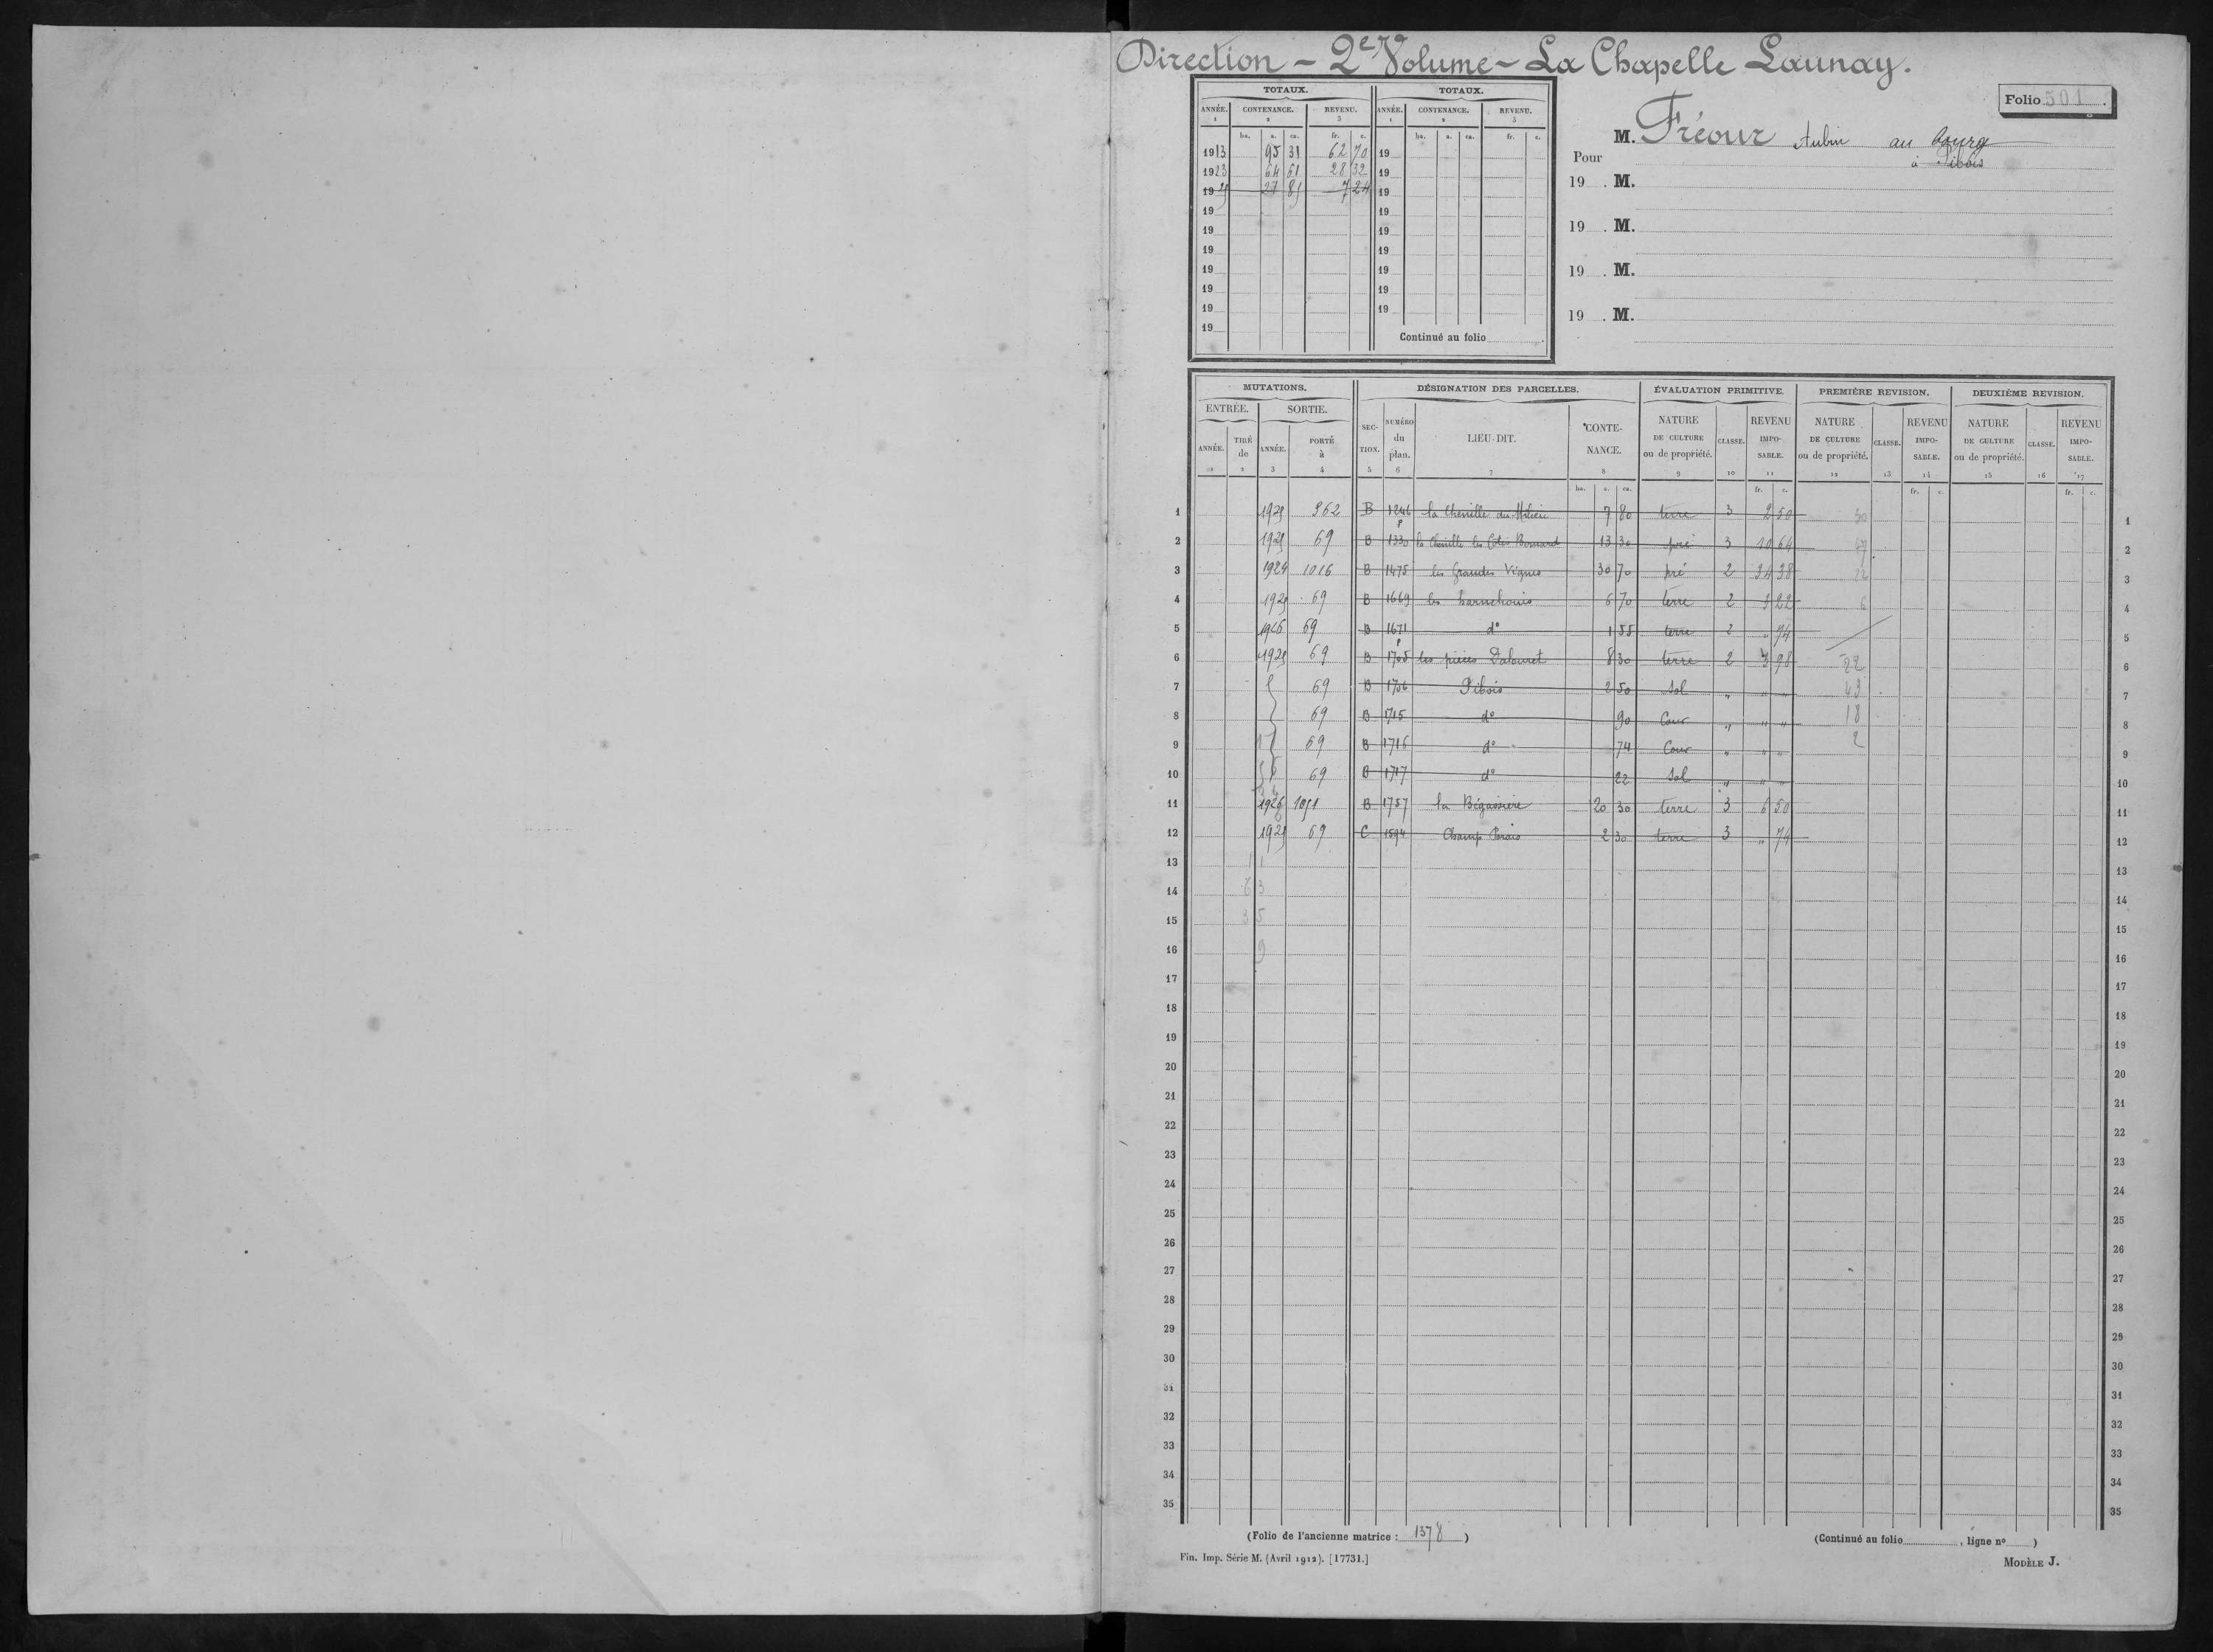 Direction - 2e Volume - La Chapelle Launay.
Folio 501.
TOTAUX. TOTAUX.
ANNÉE. CONTENANCE. REVENU. ANNÉE. CONTENANCE. REVENU.
1 2 3 1 2 3
ha. a. ca. fr. c. ha. a. ca. fr. c.
1913 95 31 62 70 19
1923 64 61 28 32 19
19 27 81 7 24 19
19 19
19 19
19 19
19 19
19 19
19 19
19
Continué au folio
M. Fréour Aubin au bourg
Pour à Pibois
19 . M.
19 . M.
19 . M.
19 . M.
MUTATIONS. DÉSIGNATION DES PARCELLES. ÉVALUATION PRIMITIVE. PREMIÈRE REVISION. DEUXIÈME REVISION.
ENTRÉE. SORTIE.
ANNÉE. TIRÉ de ANNÉE. PORTÉ à SECTION. NUMÉRO du plan. LIEU-DIT. CONTENANCE. NATURE DE CULTURE ou de propriété. CLASSE. REVENU IMPOSABLE. NATURE DE CULTURE ou de propriété. CLASSE. REVENU IMPOSABLE. NATURE DE CULTURE ou de propriété. CLASSE. REVENU IMPOSABLE.
1 2 3 4 5 6 7 8 9 10 11 12 13 14 15 16 17
ha. a. ca. fr. c. fr. c. fr. c.
1 962 B 1246 p la Chenille du Milieu 7 80 terre 3 2 50 1
2 69 B 1330 la Chenille les Cotes 13 30 pré 3 10 64 2
3 1924 1016 B 1475 les Grandes Vignes 30 70 pré 2 34 38 3
4 69 B 1669 les 6 70 terre 2 3 22 6 4
5 1926 69 B 1671 p do 1 55 terre 2 " 74 5
6 69 B 1705 les pièces 8 30 terre 2 3 98 22 6
7 69 B 1706 Pibois 2 50 Sol " " " 43 7
8 69 B 1715 do 90 Cour " " " 18 8
9 69 B 1716 do 74 Cour " " " 2 9
10 69 B 1717 do 22 Sol " " " 10
11 1926 1051 B 1757 la Bégassière 20 30 terre 3 6 50 11
12 69 C 1594 Champ 2 30 terre 3 " 74 12
13 1 1 13
14 6 3 14
15 3 5 15
16 9 16
17 17
18 18
19 19
20 20
21 21
22 22
23 23
24 24
25 25
26 26
27 27
28 28
29 29
30 30
31 31
32 32
33 33
34 34
35 35
(Folio de l'ancienne matrice : 1378 ) (Continué au folio , ligne no )
Fin. Imp. Série M. (Avril 1912). [17731.] MODÈLE J.